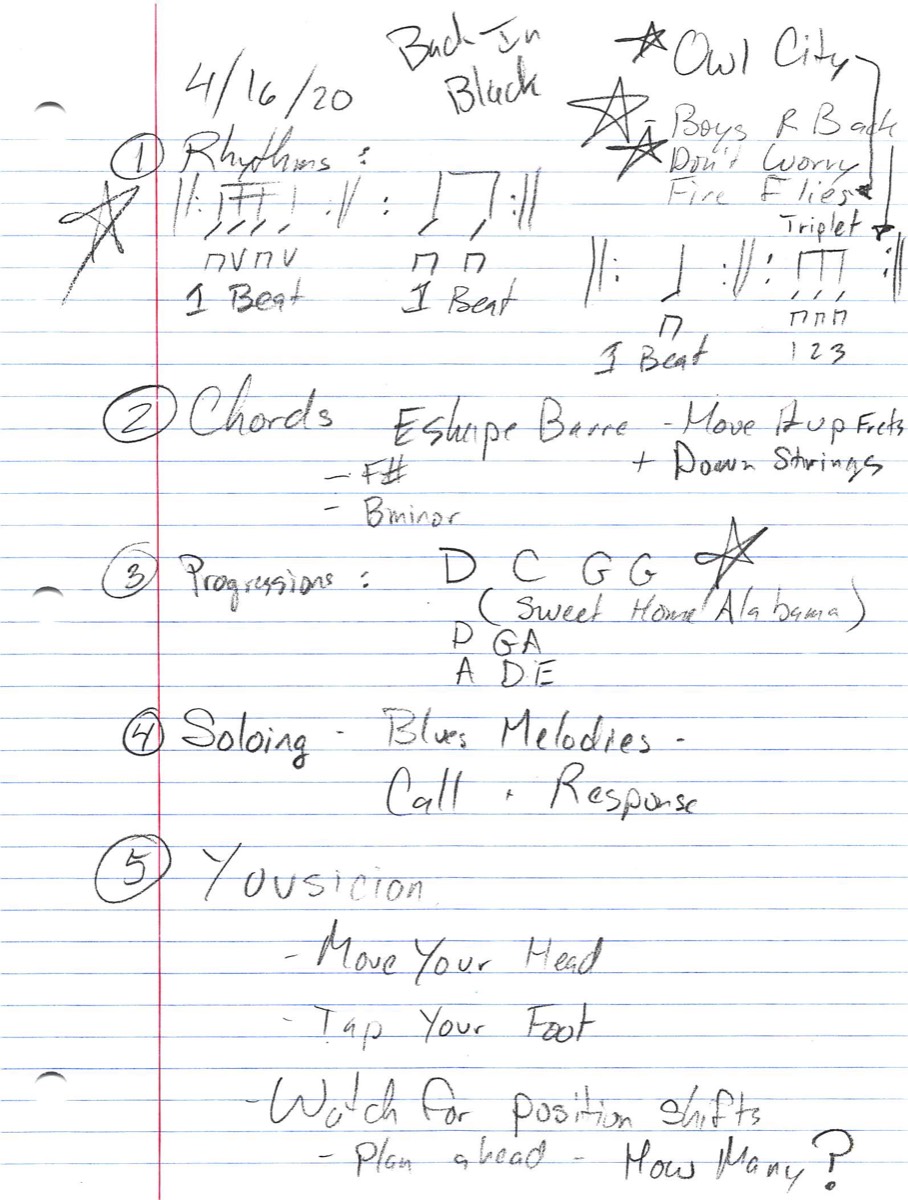 4/16/20
Back In
Black
Owl City
- Boys R Back
Don't Worry
Fire Flies
Triplet
1 Rhythms :
1 Beat 1 Beat
1 Beat 1 2 3
2 Chords E shape Barre - Move it up Frets
+ Down Strings
- F#
- B minor
3 Progressions : D C G G
(Sweet Home Alabama)
D G A
A D E
4 Soloing - Blues Melodies -
Call + Response
5 Yousicion
- Move Your Head
- Tap Your Foot
- Watch for position shifts
- Plan ahead - How Many?